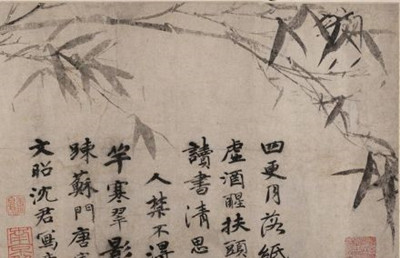 四更月落紙
虛酒醒扶頭
讀書清思
人禁不得
竿寒翠影
踈蘇門唐
文昭沈君寫